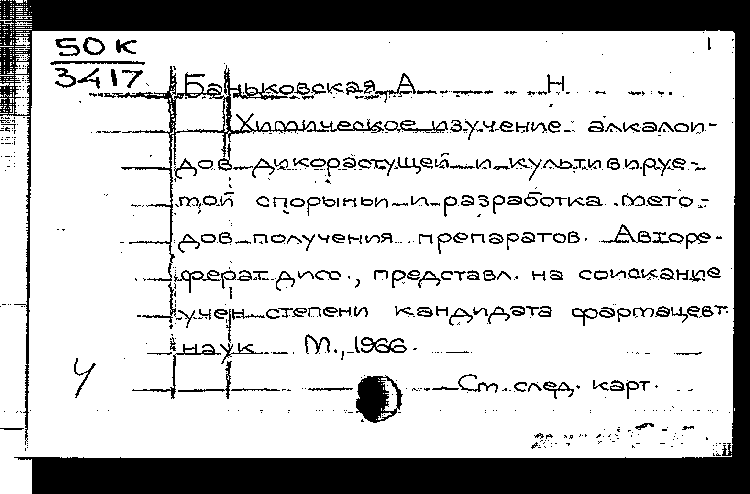 50к
3417
1
Баньковская, А Н
Химическое изучение алкалои-
дов дикорастущей и культивируе-
мой спорыньи и разработка мето-
дов получения препаратов. Авторе-
ферат дисс., представл. на соискание
учен степени кандидата фармацевт.
наук М., 1966.
См. след. карт.